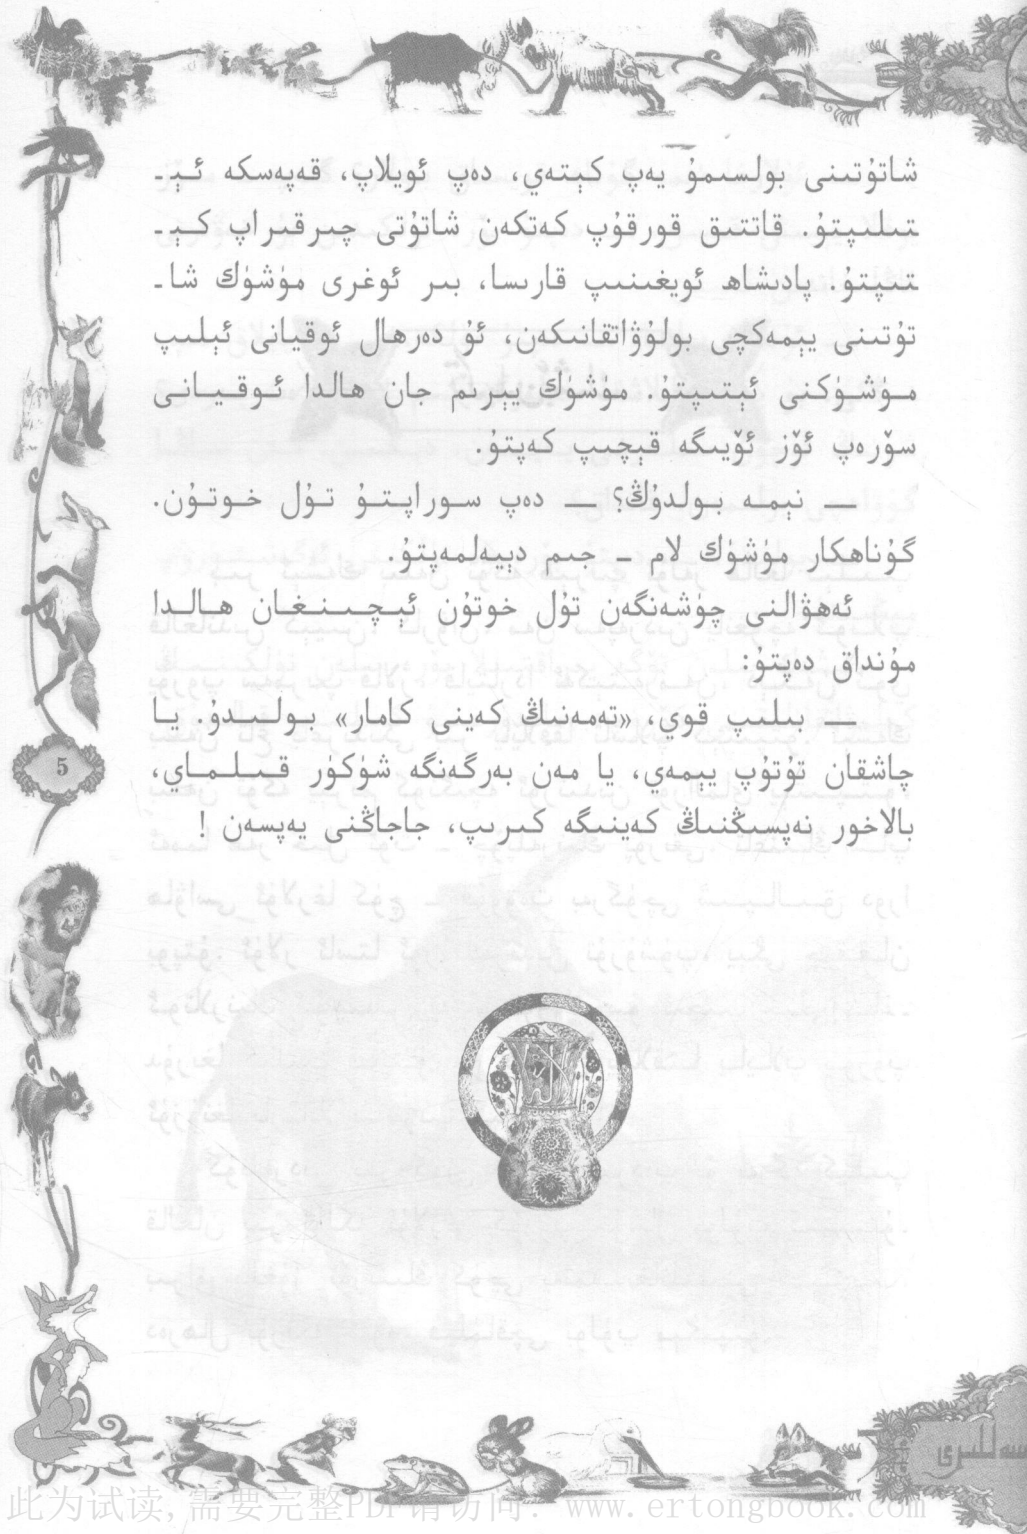 شاتۇتىنى بولسىمۇ يەپ كېتەي، دەپ ئويلاپ، قەپەسكە ئې-
تىلىپتۇ. قاتتىق قورقۇپ كەتكەن شاتۇتى چىرقىراپ كې-
تىپتۇ. پادىشاھ ئويغىنىپ قارىسا، بىر ئوغرى مۈشۈك شا-
تۇتىنى يېمەكچى بولۇۋاتقانىكەن، ئۇ دەرھال ئوقيانى ئېلىپ
مۈشۈكنى ئېتىپتۇ. مۈشۈك يېرىم جان ھالدا ئوقيانى
سۆرەپ ئۆز ئۆيىگە قېچىپ كەپتۇ.
— نېمە بولدۇڭ؟ — دەپ سوراپتۇ تۇل خوتۇن.
گۇناھكار مۈشۈك لام - جىم دېيەلمەپتۇ.
ئەھۋالنى چۈشەنگەن تۇل خوتۇن ئېچىنغان ھالدا
مۇنداق دەپتۇ:
— بىلىپ قوي، «تەمەنىڭ كەينى كامار» بولىدۇ. يا
چاشقان تۇتۇپ يېمەي، يا مەن بەرگەنگە شۈكۈر قىلماي،
بالاخور نەپسىڭنىڭ كەينىگە كىرىپ، جاجاڭنى يەپسەن !
5
سەللىرى
此为试读,需要完整PDF请访问: www.ertongbook.com